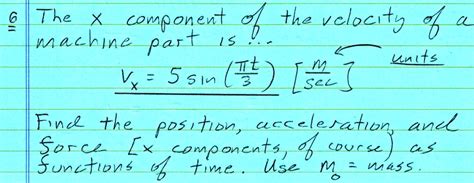 6 The x component of the velocity of a
machine part is ...
units
Vₓ = 5 sin (πt/3) [m/sec]
Find the position, acceleration, and
force [x components, of course) as
functions of time. Use m₀ = mass.